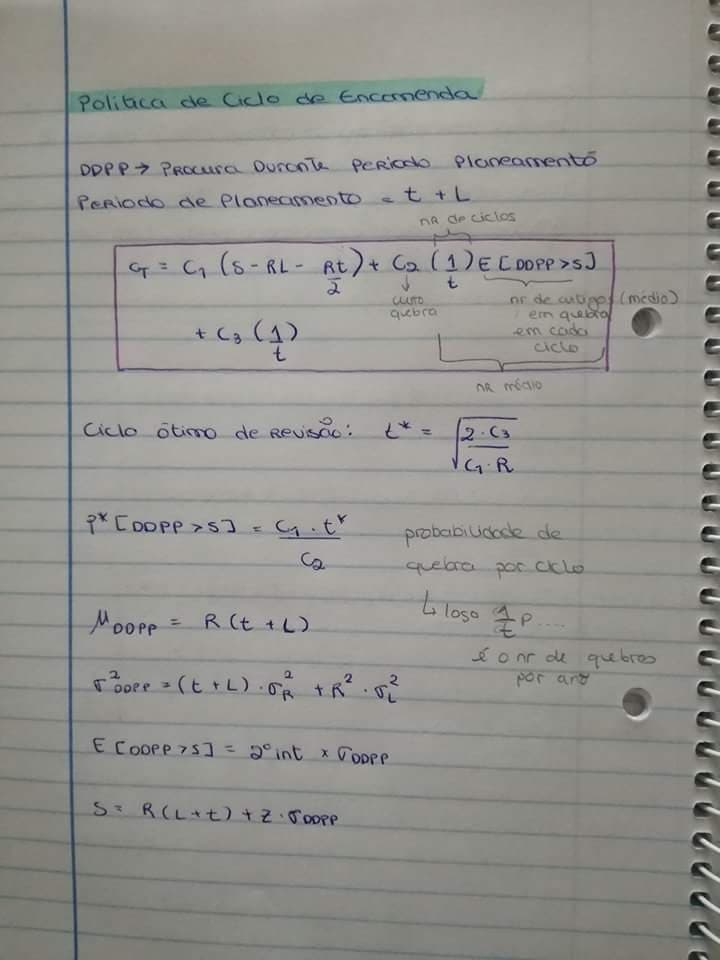 Politica de Ciclo de Encomenda
DDPP → Procura Durante Periodo Planeamento
Periodo de Planeamento = t + L
nr de ciclos
CT = C1 (S - RL - Rt/2) + C2 (1/t) E[DDPP>S]
custo quebra
nr de artigos (médio) em quebra em cada ciclo
+ C3 (1/t)
nr médio
Ciclo ótimo de Revisão: t* = √(2·C3 / C1·R)
P*[DDPP>S] = C1·t* / C2
probabilidade de
quebra por ciclo
↳ logo 1/t P....
é o nr de quebras
por ano
μDDPP = R(t+L)
σ²DDPP = (t+L)·σ²R + R²·σ²L
E[DDPP>S] = 2º int x σDDPP
S = R(L+t) + Z·σDDPP